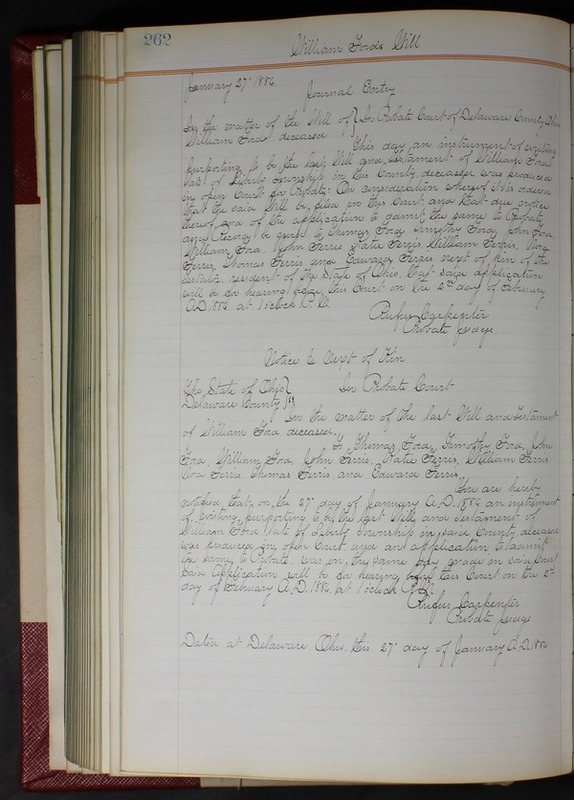 262
William Fords Will
January 27" 1886.
Journal Entry
In the matter of the Will of } In Probate Court of Delaware County, Ohio
William Ford deceased
This day an instrument of writing
purporting to be the last Will and Testament of William Ford
late of Liberty Township in this County deceased was produced
in open Court for Probate: On consideration whereof it is ordered
that the said Will be filed in this Court and that due notice
thereof and of the application to admit the same to Probate
and Record be given to Thomas Ford, Timothy Ford, John Ford,
William Ford, John Ferris, Katie Ferris, William Ferris,
Ferris, Thomas Ferris and Edward Ferris next of kin of the
testator resident of the State of Ohio, that said application
will be for hearing before this Court on the 2nd day of February
A.D. 1886. at 1 o'clock P.M.
Rufus Carpenter
Probate Judge.
Notice to Next of Kin
The State of Ohio } In Probate Court
Delaware County } ss
In the matter of the last Will and Testament
of William Ford, deceased.
To Thomas Ford, Timothy Ford, John
Ford, William Ford, John Ferris, Katie Ferris, William Ferris
Ferris, Thomas Ferris and Edward Ferris.
You are hereby
notified that on the 27" day of January A.D. 1886 an instrument
of writing purporting to be the last Will and Testament of
William Ford late of Liberty Township in said County deceased
was produced in open Court and an application to admit
the same to Probate was on the same day made in said Court
Said Application will be for hearing before this Court on the 2nd
day of February A.D. 1886. at 1 o'clock P.M.
Rufus Carpenter
Probate Judge
Dated at Delaware Ohio, this 27" day of January A.D. 1886